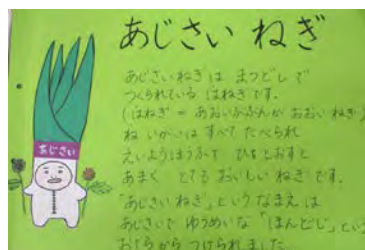 あじさい ねぎ
あじさいねぎは まつどしで
つくられている はねぎです。
(はねぎ = あおいぶぶんが おおい ねぎ)
ね いがいは すべて たべられ
えいようほうふで ひをとおすと
あまく とても おいしい ねぎ です。
"あじさいねぎ"という なまえ は
あじさいで ゆうめいな 「ほんどじ」という
おてらから つけられました
あじさい